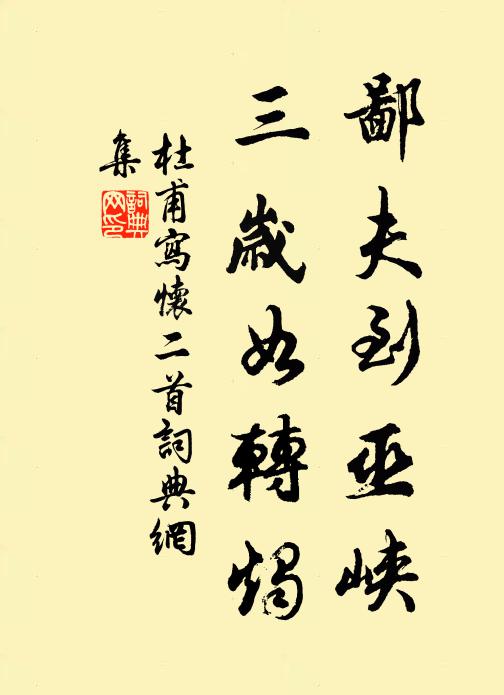 鄙夫到巫峽
三歲如轉燭
杜甫寫懷二首詞典網
集
詞典網印